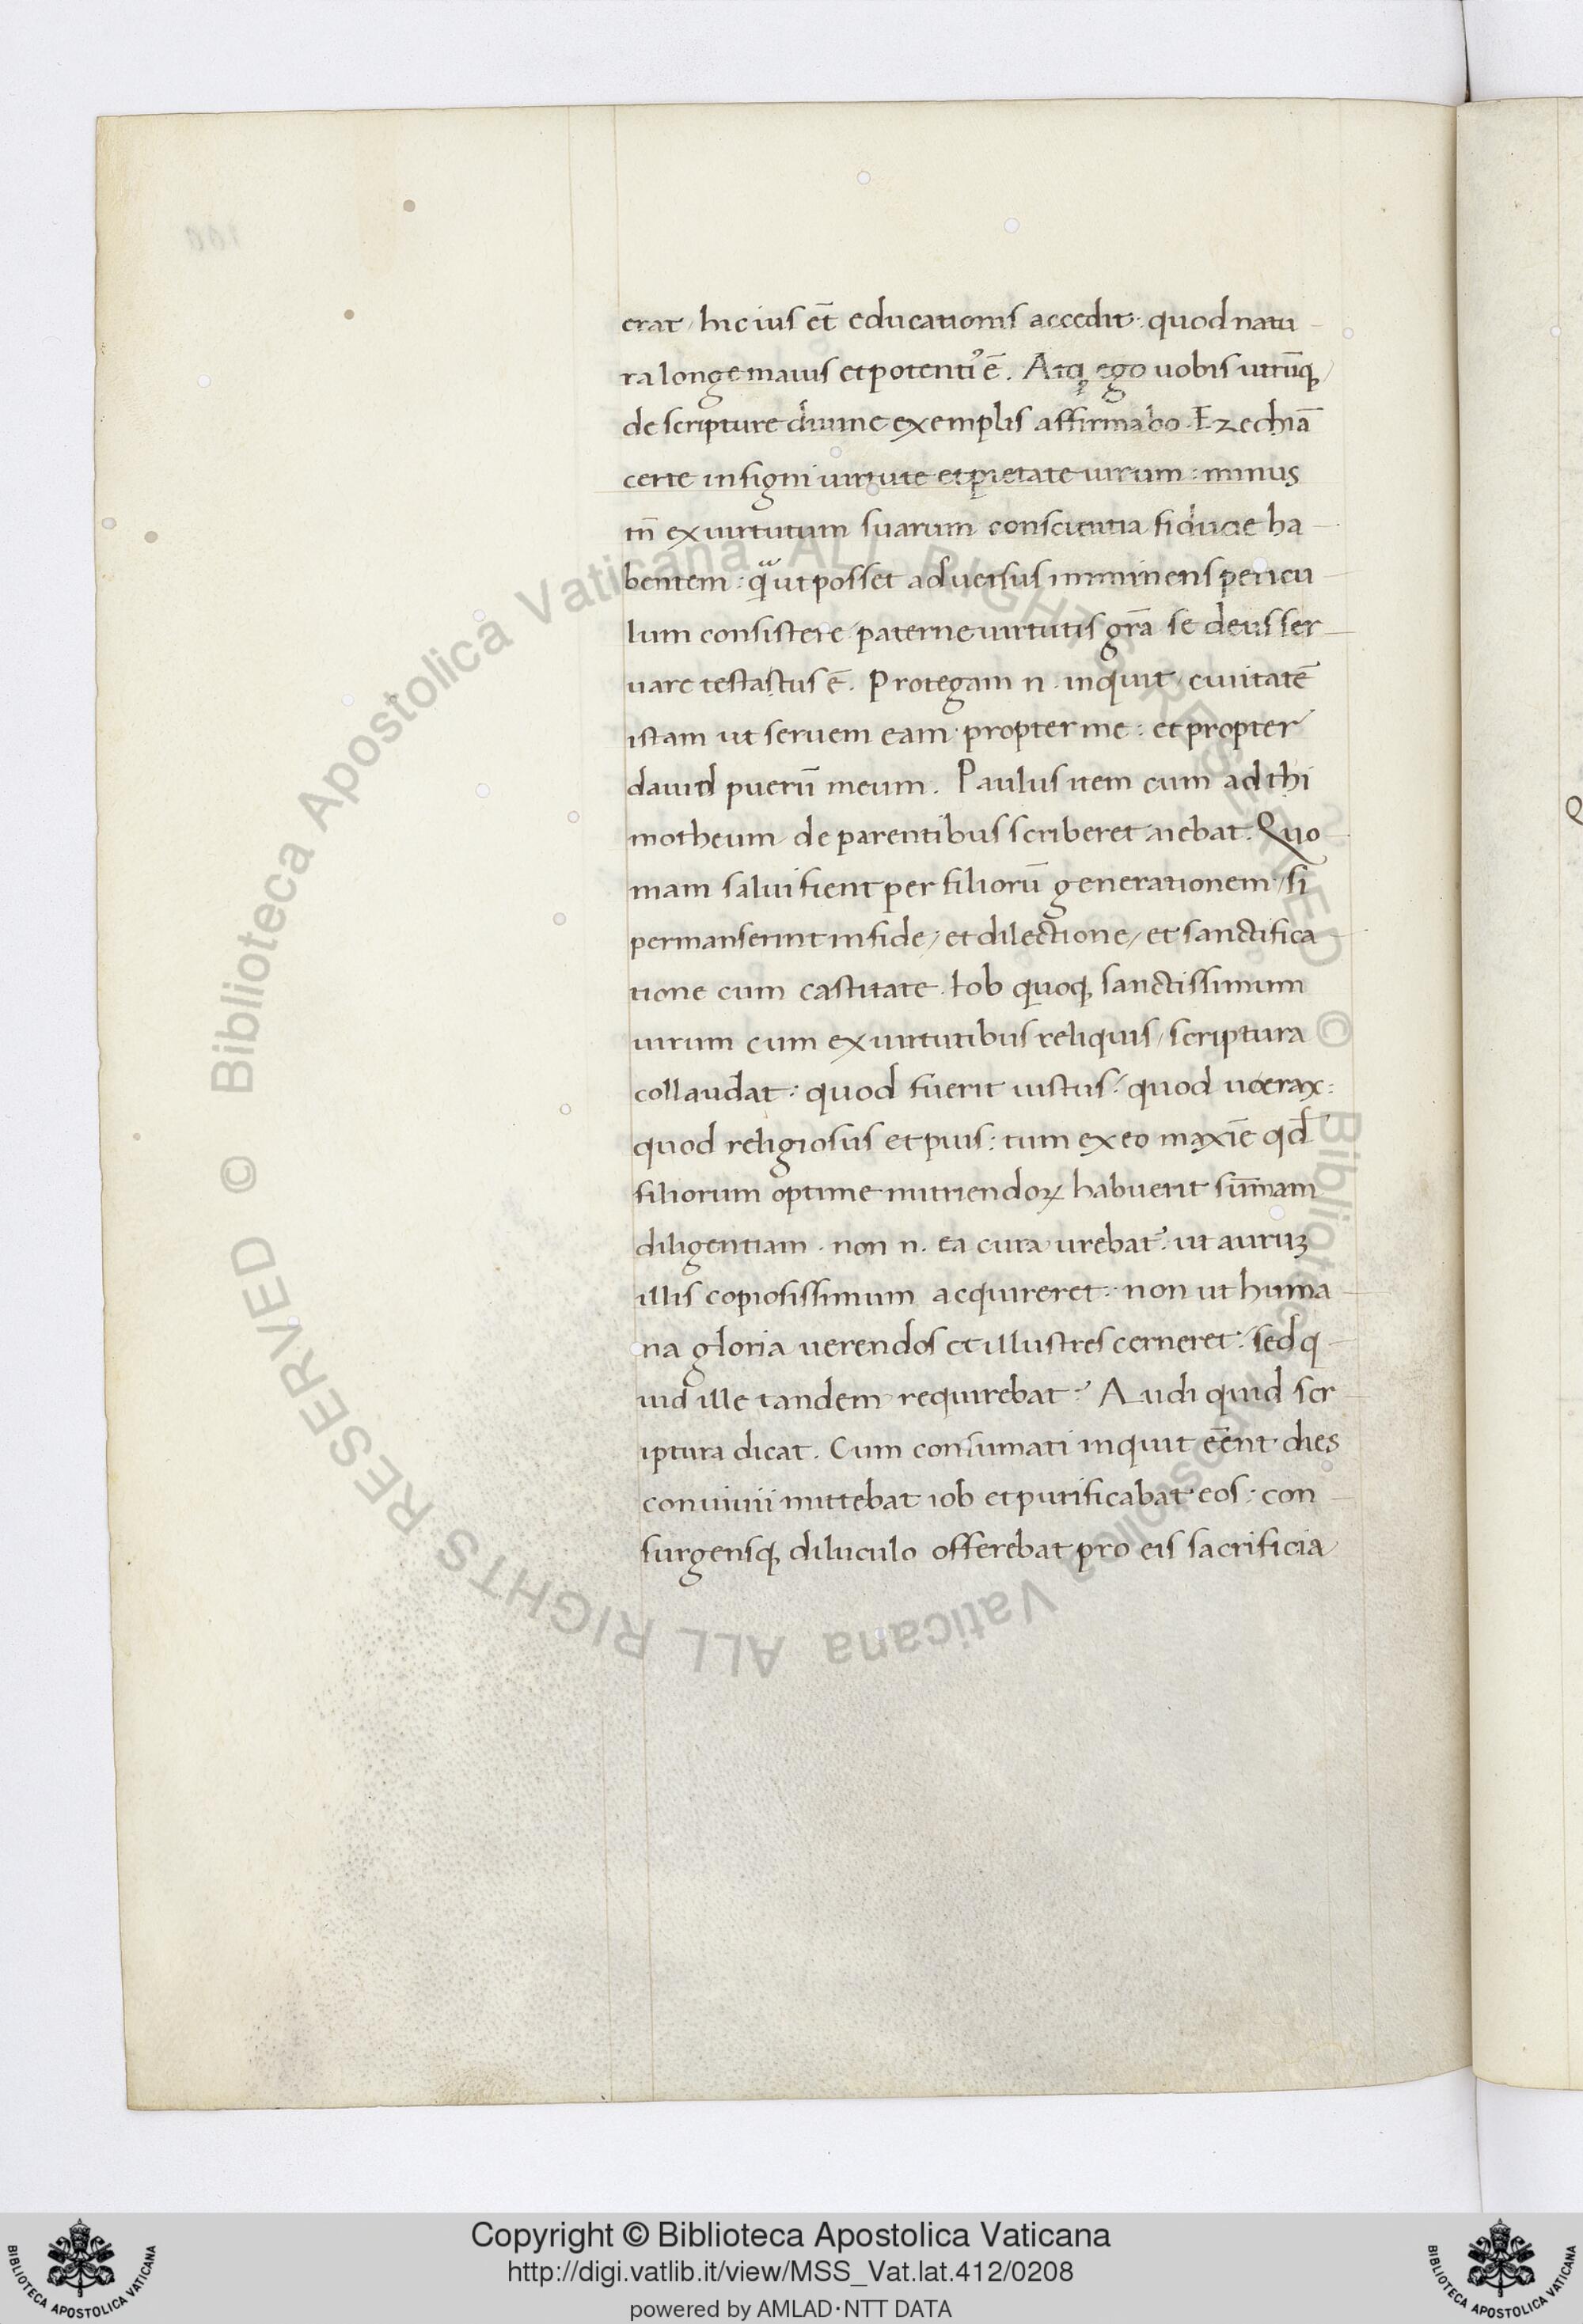 erat / hic ius et̄ educationis accedit : quod natu
ra longe maius et potentiꝰ ē . Atq; ego uobis utrūq;
de scripture diuine exemplis affirmabo . Ezechiā
certe insigni uirtute et pietate uirum : minus
tn̄ ex uirtutum suarum conscientia fiducie ha
bentem : q̄ ut posset aduersus imminens pericu
lum consistere / paterne uirtutis grā se deus ser
uare testastus ē . Protegam n . inquit / ciuitatē
istam ut seruem eam propter me : et propter
dauid puerū meum . Paulus item cum ad thi
motheum de parentibus scriberet aiebat . Quo
niam salui fient per filiorū generationem / si
permanserint in fide / et dilectione / et sanctifica
tione cum castitate . Iob quoq; sanctissimum
uirum cum ex uirtutibus reliquis / scriptura
collaudat : quod fuerit iustus / quod uerax :
quod religiosus et pius : tum ex eo maxīe qđ
filiorum optime nutriendoꝝ habuerit sūmam
diligentiam . non n . ea cura urebatꝰ . ut auruꝫ
illis copiosissimum acquireret : non ut huma
na gloria uerendos et illustres cerneret : sed q
uid ille tandem requirebat ? Audi quid scr
iptura dicat . Cum consumati inquit eēnt dies
conuiuii mittebat iob et purificabat eos : con
surgensq; diluculo offerebat pro eis sacrificia
© Biblioteca Apostolica Vaticana ALL RIGHTS RESERVED
© Biblioteca Apostolica Vaticana ALL RIGHTS RESERVED
BIBLIOTECA APOSTOLICA VATICANA
Copyright © Biblioteca Apostolica Vaticana
http://digi.vatlib.it/view/MSS_Vat.lat.412/0208
powered by AMLAD·NTT DATA
BIBLIOTECA APOSTOLICA VATICANA